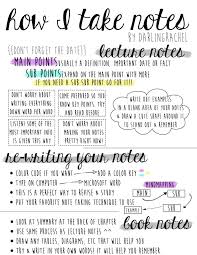 how I take notes
BY DARLINGRACHEL
(DON'T FORGET THE DATE!) lecture notes
MAIN POINTS USUALLY A DEFINITION, IMPORTANT DATE OR FACT
SUB POINTS EXPAND ON THE MAIN POINT WITH MORE
IF YOU NEED A SUB SUB POINT GO FOR IT!!
DON'T WORRY ABOUT
WRITING EVERYTHING
DOWN WORD FOR WORD
COME PREPARED SO YOU
KNOW KEY POINTS, TRY
AND READ BEFORE
LISTEN! SOME OF THE
MOST IMPORTANT
THINGS AREN'T WRITTEN
DON'T WORRY ABOUT
MAKING YOUR NOTES
PRETTY RIGHT NOW
WRITE OUT EXAMPLES
IN A BLANK AREA OF YOUR NOTES
DRAW A CLOUD OR SHAPE
AROUND IT SO YOU KNOW IT'S
AN EXAMPLE
re-writing your notes
COLOR CODE IF YOU WANT → ADD A COLOR KEY
TYPE ON COMPUTER → MICROSOFT WORD
THIS IS A PERFECT WAY TO REVISE & STUDY
PUT YOUR FAVORITE NOTE TAKING TECHNIQUE TO USE
MINDMAPPING
MAIN
SUB
book notes
LOOK AT SUMMARY AT THE BACK OF CHAPTER
USE SAME PROCESS AS LECTURE NOTES
DRAW ANY TABLES, DIAGRAMS, ETC THAT WILL HELP YOU
TRY & WRITE IN YOUR OWN WORDS SO IT WILL HELP YOU REMEMBER